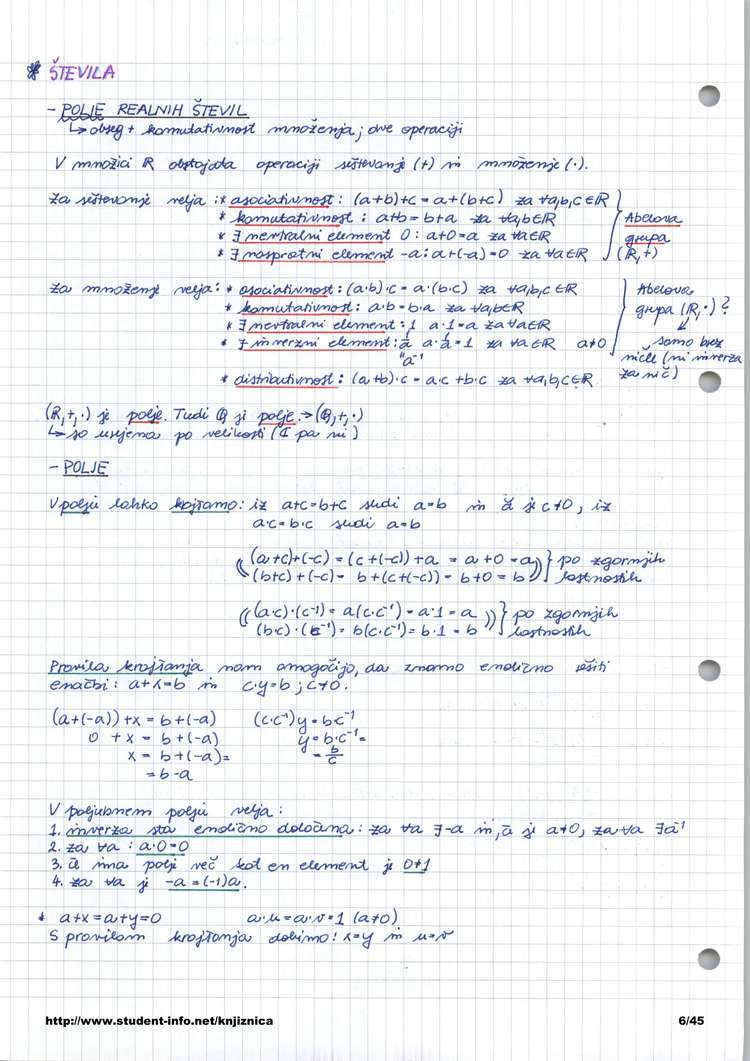 * ŠTEVILA
- POLJE REALNIH ŠTEVIL
↳ obseg + komutativnost množenja; dve operaciji
V množici ℝ obstajata operaciji seštevanje (+) in množenje (·).
Za seštevanje velja: * asociativnost: (a+b)+c = a+(b+c) za ∀a,b,c∈ℝ
* komutativnost: a+b=b+a za ∀a,b∈ℝ } Abelova
* ∃ nevtralni element 0: a+0=a za ∀a∈ℝ grupa
* ∃ nasprotni element -a: a+(-a)=0 za ∀a∈ℝ (ℝ,+)
Za množenje velja: * asociativnost: (a·b)·c = a·(b·c) za ∀a,b,c∈ℝ } Abelova
* komutativnost: a·b=b·a za ∀a,b∈ℝ grupa (ℝ,·)?
* ∃ nevtralni element: 1 a·1=a za ∀a∈ℝ
* ∃ inverzni element: 1/a a·1/a=1 za ∀a∈ℝ a≠0 samo brez
"a⁻¹ ničle (ni inverza
* distributivnost: (a+b)·c = a·c+b·c za ∀a,b,c∈ℝ za nič)
(ℝ,+,·) je polje. Tudi ℚ je polje. → (ℚ,+,·)
↳ so urejena po velikosti (ℂ pa ni)
- POLJE
V polju lahko krajšamo: iz a+c=b+c sledi a=b in če je c≠0, iz
a·c=b·c sledi a=b
((a+c)+(-c) = (c+(-c))+a = a+0=a } po zgornjih
(b+c)+(-c) = b+(c+(-c)) = b+0=b)) lastnostih
((a·c)·(c⁻¹) = a(c·c⁻¹) = a·1=a )) } po zgornjih
(b·c)·(c⁻¹) = b(c·c⁻¹) = b·1=b lastnostih
Pravila krajšanja nam omogočijo, da znamo enolično rešiti
enačbi: a+x=b in c·y=b; c≠0.
(a+(-a))+x = b+(-a) (c·c⁻¹)y = bc⁻¹
0 + x = b+(-a) y = b·c⁻¹ =
x = b+(-a) = = b/c
= b-a
V poljubnem polju velja:
1. inverza sta enolično določena: za ∀a ∃-a in, če je a≠0, za ∀a ∃a⁻¹
2. za ∀a: a·0=0
3. če ima polje več kot en element je 0≠1
4. za ∀a je -a=(-1)a.
* a+x=a+y=0 a·u=a·v=1 (a≠0)
S pravilom krajšanja dobimo: x=y in u=v
http://www.student-info.net/knjiznica 6/45